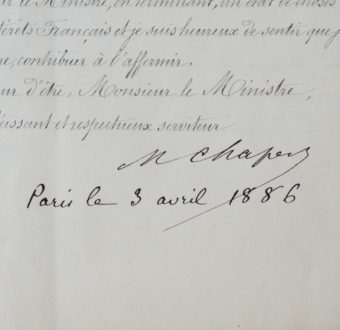 ur le Ministre, en terminant, un état de choses
térêts Français et je suis heureux de sentir que j
re, contribuer à l'affermir.
ur d'être, Monsieur le Ministre,
éissant et respectueux serviteur
M Chaper
Paris le 3 avril 1886